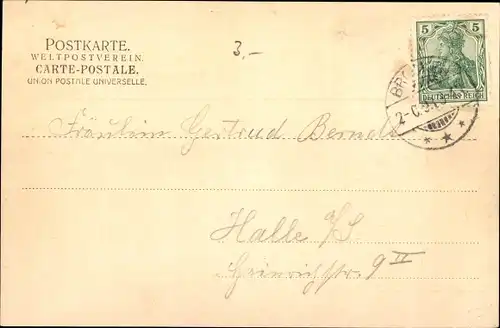 POSTKARTE.
WELTPOSTVEREIN.
CARTE-POSTALE.
UNION POSTALE UNIVERSELLE.
3,-
5 5
DEUTSCHES REICH
Fräulein Gertrud
Halle
Heinrichstr. 9 II